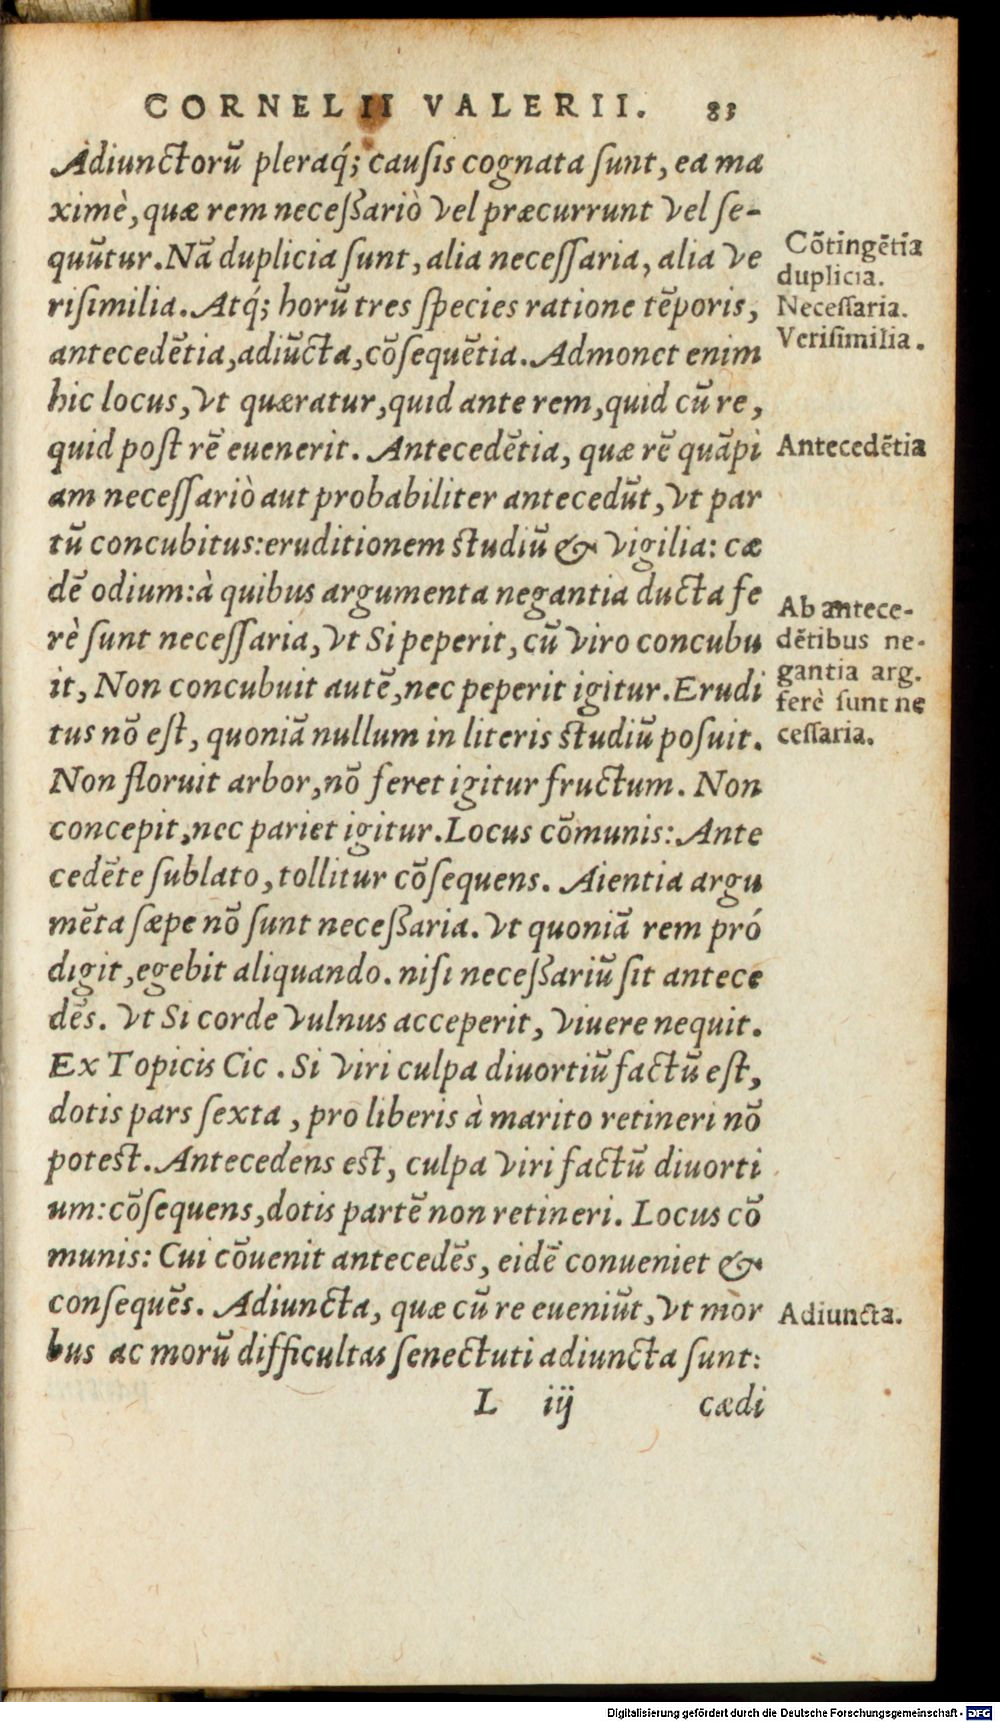 CORNELII VALERII. 83
Adiunctorū pleraq́; causis cognata sunt, ea ma
ximè, quæ rem necessariò vel præcurrunt vel se-
quūtur. Nā duplicia sunt, alia necessaria, alia ve
risimilia. Atq́; horū tres species ratione tēporis,
antecedētia, adiūcta, cōsequētia. Admonet enim
hic locus, vt quæratur, quid ante rem, quid cū re,
quid post rē euenerit. Antecedētia, quæ rē quāpi
am necessariò aut probabiliter antecedūt, vt par
tū concubitus: eruditionem studiū & vigilia: cæ
dē odium: à quibus argumenta negantia ducta fe
rè sunt necessaria, vt Si peperit, cū viro concubu
it, Non concubuit autē, nec peperit igitur. Erudi
tus nō est, quoniā nullum in literis studiū posuit.
Non floruit arbor, nō feret igitur fructum. Non
concepit, nec pariet igitur. Locus cōmunis: Ante
cedēte sublato, tollitur cōsequens. Aientia argu
mēta sæpe nō sunt necessaria. vt quoniā rem pró
digit, egebit aliquando. nisi necessariū sit antece
dēs. vt Si corde vulnus acceperit, viuere nequit.
Ex Topicis Cic. Si viri culpa diuortiū factū est,
dotis pars sexta, pro liberis à marito retineri nō
potest. Antecedens est, culpa viri factū diuorti
um: cōsequens, dotis partē non retineri. Locus cō
munis: Cui cōuenit antecedēs, eidē conueniet &
consequēs. Adiuncta, quæ cū re eueniūt, vt mor
bus ac morū difficultas senectuti adiuncta sunt:
L iij cædi
Cōtingētia
duplicia.
Necessaria.
Verisimilia.
Antecedētia
Ab antece-
dētibus ne-
gantia arg.
ferè sunt ne
cessaria.
Adiuncta.
Digitalisierung gefördert durch die Deutsche Forschungsgemeinschaft - DFG